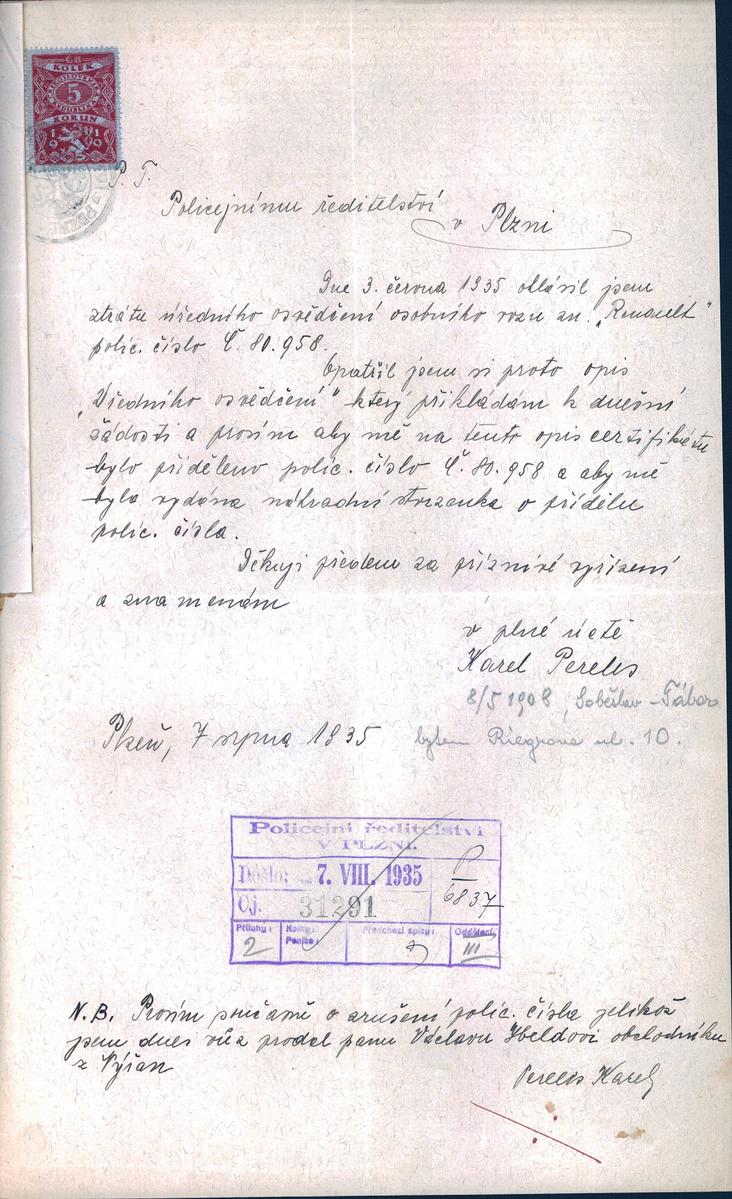 KOLEK
5
KORUN
1919
P. T.
Policejnímu ředitelství
v Plzni
Dne 3. června 1935 ohlásil jsem
ztrátu úředního osvědčení osobního vozu zn. „Renault"
polic. číslo Č. 80.958.
Opatřil jsem si proto opis
„Úředního osvědčení" který přikládám k dnešní
žádosti a prosím aby mě na tento opis certifikátu
bylo přiděleno polic. číslo Č. 80.958 a aby mě
byla vydána náhradní stvrzenka o přídělu
polic. čísla.
Děkuji předem za příznivé vyřízení
a znamenám
v plné úctě
Karel Pereles
8/5 1908, Soběslav - Tábor
Plzeň, 7 srpna 1935
bytem Riegrova ul. 10.
Policejní ředitelství
V PLZNI.
Došlo: 7. VIII. 1935
P
6837
Čj. 31291
Přílohy: 2
Kolky:
Peníze:
Předchozí spisy:
Oddělení: III
N.B. Prosím současně o zrušení polic. čísla jelikož
jsem dnes vůz prodal panu Václavu obchodníku
z Nýřan
Pereles Karel